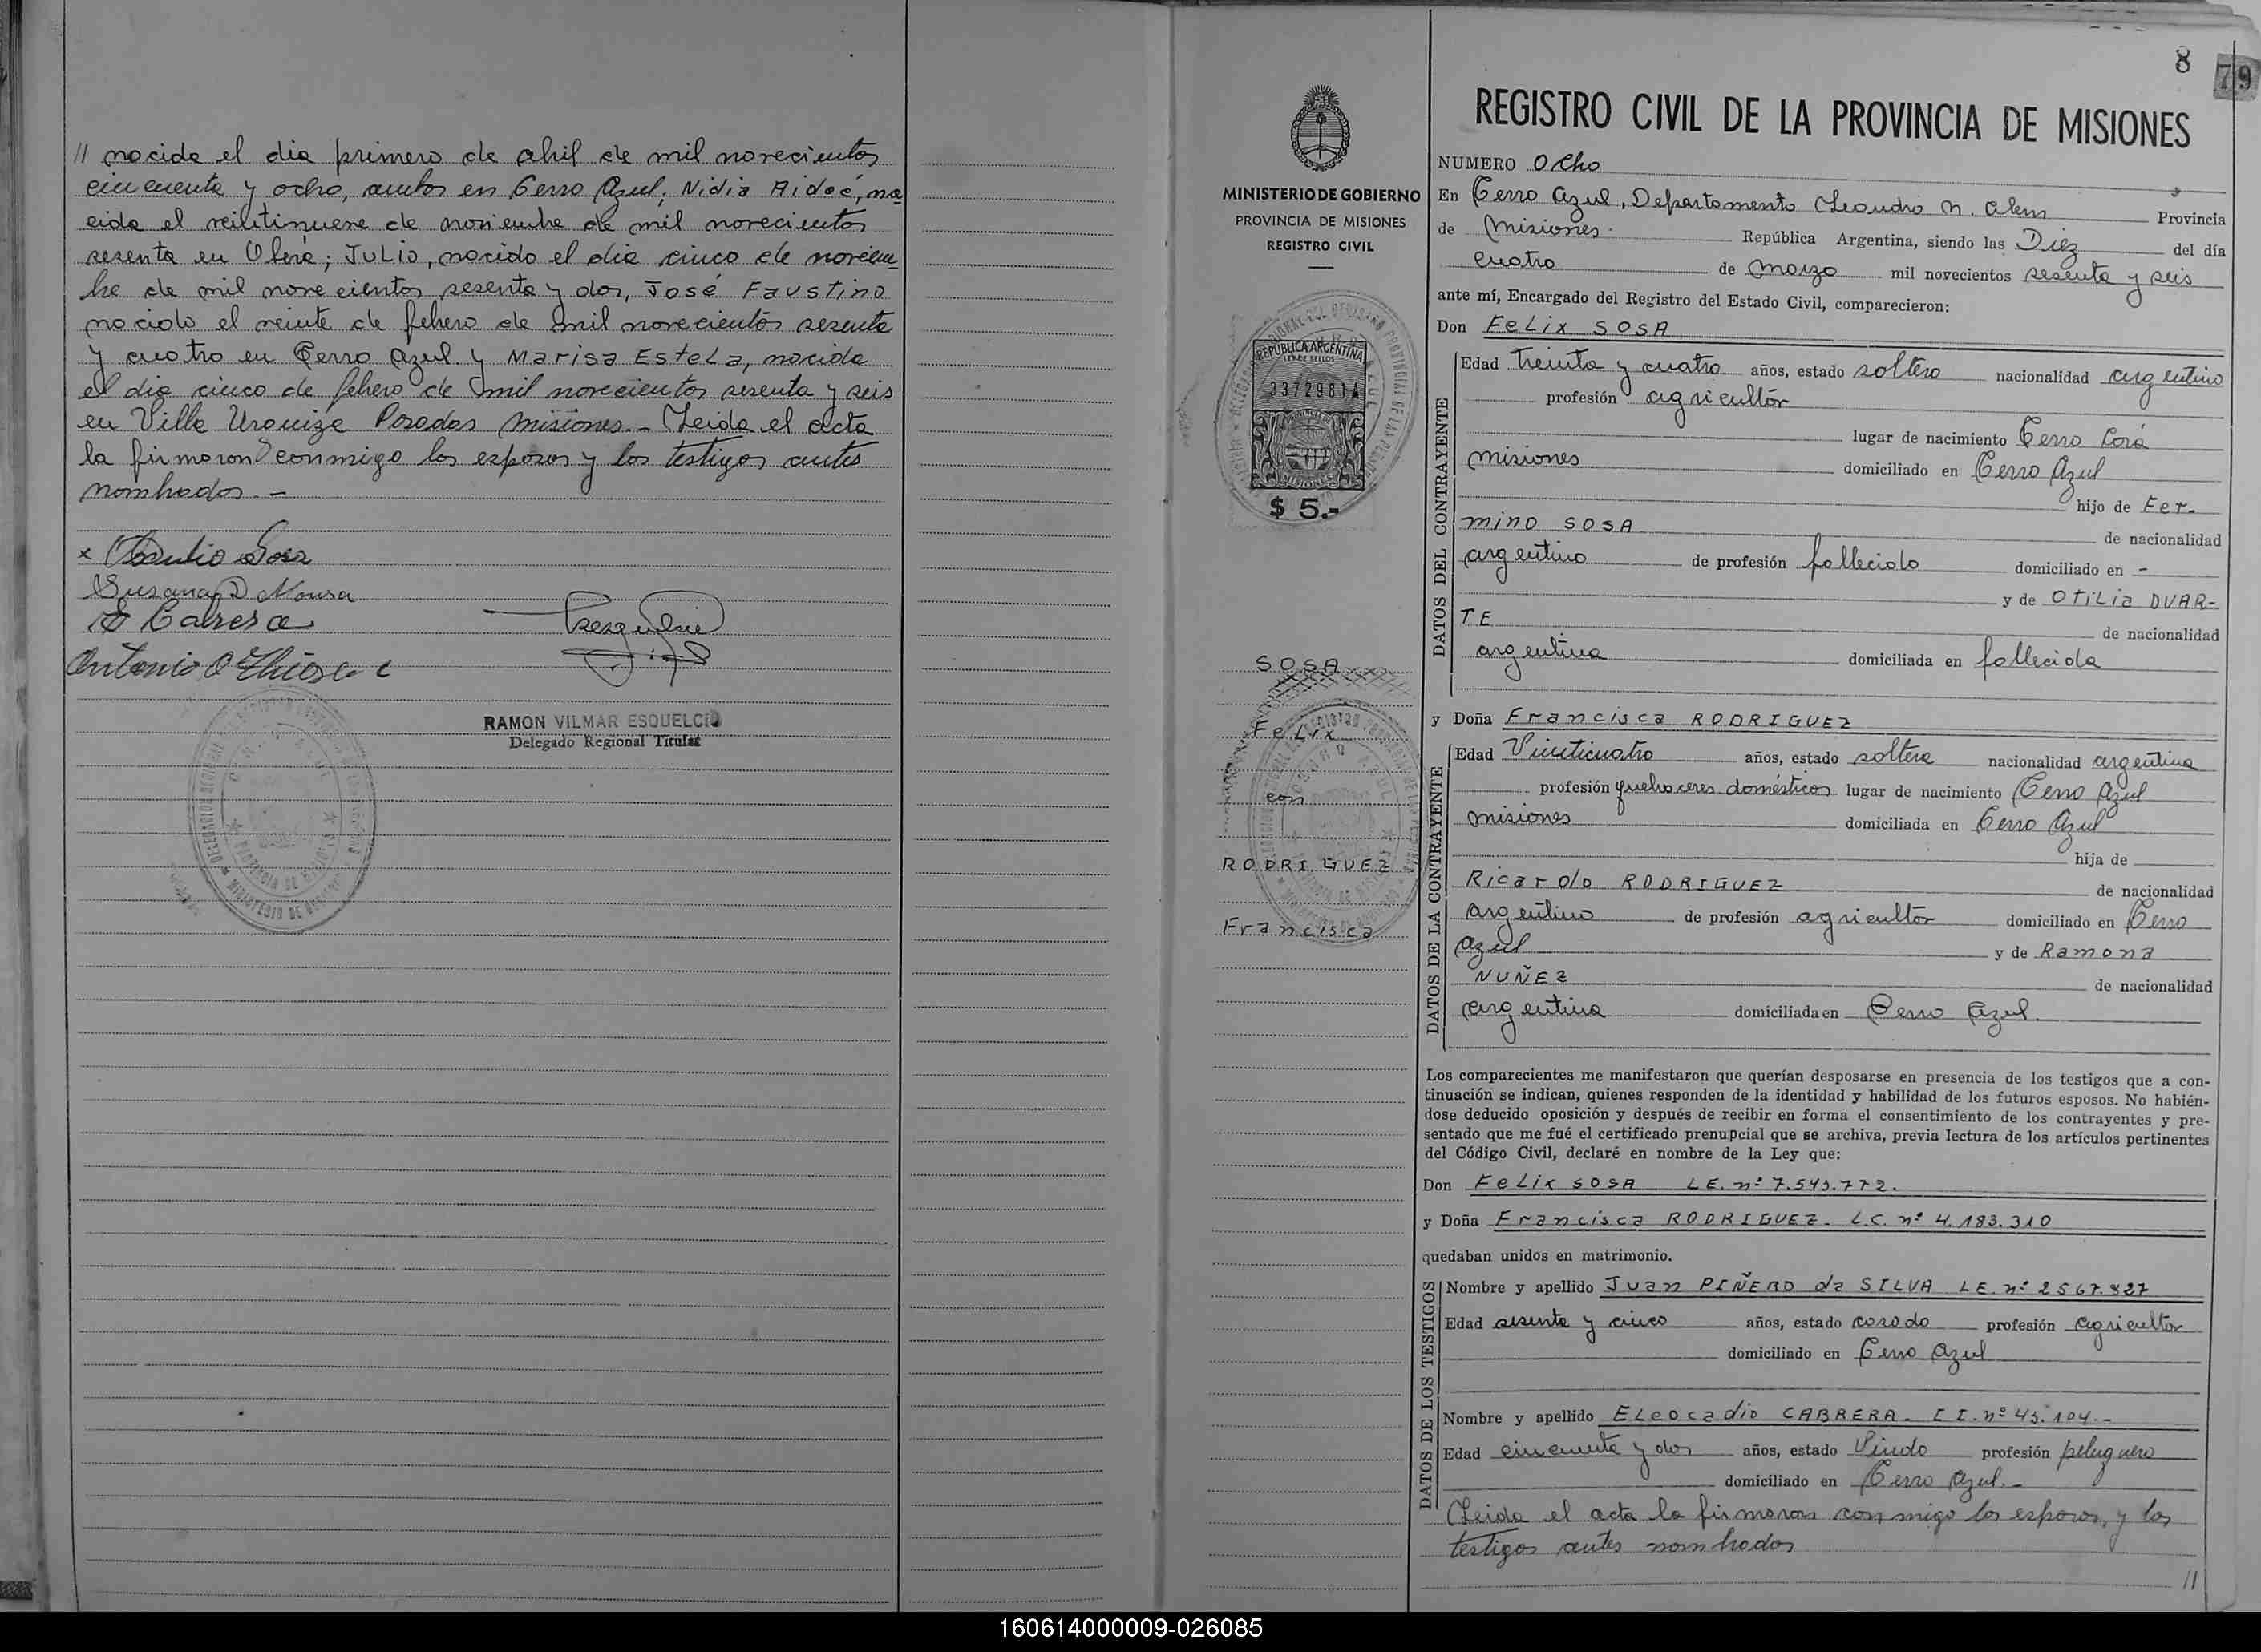 // nacida el día primero de abril de mil novecientos
cincuenta y ocho, ambos en Cerro Azul; Nidia Aideé, na
cida el veintinueve de noviembre de mil novecientos
sesenta en Oberá; JULIO, nacido el día cinco de noviem
bre de mil novecientos sesenta y dos, José Faustino
nacido el veinte de febrero de mil novecientos sesenta
y cuatro en Cerro Azul y Marisa Estela, nacida
el día cinco de febrero de mil novecientos sesenta y seis
en Villa Urquiza Posadas Misiones.- Leida el acta
la firmaron conmigo los esposos y los testigos antes
nombrados.-
x Sosa
Susana D Moura
E Cabrera
Antonio O
RAMON VILMAR ESQUELCIO
Delegado Regional Titular
MINISTERIO DE GOBIERNO
PROVINCIA DE MISIONES
REGISTRO CIVIL
REPUBLICA ARGENTINA
LEY DE SELLOS
3372981A
MISIONES
$ 5.-
SOSA
Felix
con
RODRIGUEZ
Francisca
8
79
REGISTRO CIVIL DE LA PROVINCIA DE MISIONES
NUMERO Ocho
En Cerro Azul, Departamento Leandro N. Alem Provincia
de Misiones- República Argentina, siendo las Diez del día
cuatro de marzo mil novecientos sesenta y seis
ante mí, Encargado del Registro del Estado Civil, comparecieron:
Don Felix SOSA
DATOS DEL CONTRAYENTE
Edad treinta y cuatro años, estado soltero nacionalidad argentino
profesión agricultor
lugar de nacimiento Cerro Corá
Misiones domiciliado en Cerro Azul
hijo de Fer-
mino SOSA de nacionalidad
argentino de profesión fallecido domiciliado en -
y de Otilia DUAR-
TE de nacionalidad
argentina domiciliada en fallecida
y Doña Francisca RODRIGUEZ
DATOS DE LA CONTRAYENTE
Edad Veinticuatro años, estado soltera nacionalidad argentina
profesión quehaceres domésticos lugar de nacimiento Cerro Azul
Misiones domiciliada en Cerro Azul
hija de
Ricardo RODRIGUEZ de nacionalidad
argentino de profesión agricultor domiciliado en Cerro
Azul y de Ramona
NUÑEZ de nacionalidad
argentina domiciliada en Cerro Azul.
Los comparecientes me manifestaron que querían desposarse en presencia de los testigos que a con-
tinuación se indican, quienes responden de la identidad y habilidad de los futuros esposos. No habién-
dose deducido oposición y después de recibir en forma el consentimiento de los contrayentes y pre-
sentado que me fué el certificado prenupcial que se archiva, previa lectura de los artículos pertinentes
del Código Civil, declaré en nombre de la Ley que:
Don Felix SOSA L.E. nº 7.543.772.
y Doña Francisca RODRIGUEZ- L.C. nº 4.183.310
quedaban unidos en matrimonio.
DATOS DE LOS TESTIGOS
Nombre y apellido Juan PIÑERO da SILVA L.E. nº 2567.827
Edad sesenta y cinco años, estado casado profesión agricultor
domiciliado en Cerro Azul
Nombre y apellido Eleocadio CABRERA- C I. nº 43.104.-
Edad cincuenta y dos años, estado Viudo profesión peluquero
domiciliado en Cerro Azul.-
Leida el acta la firmaron conmigo los esposos, y los
testigos antes nombrados
//
160614000009-026085